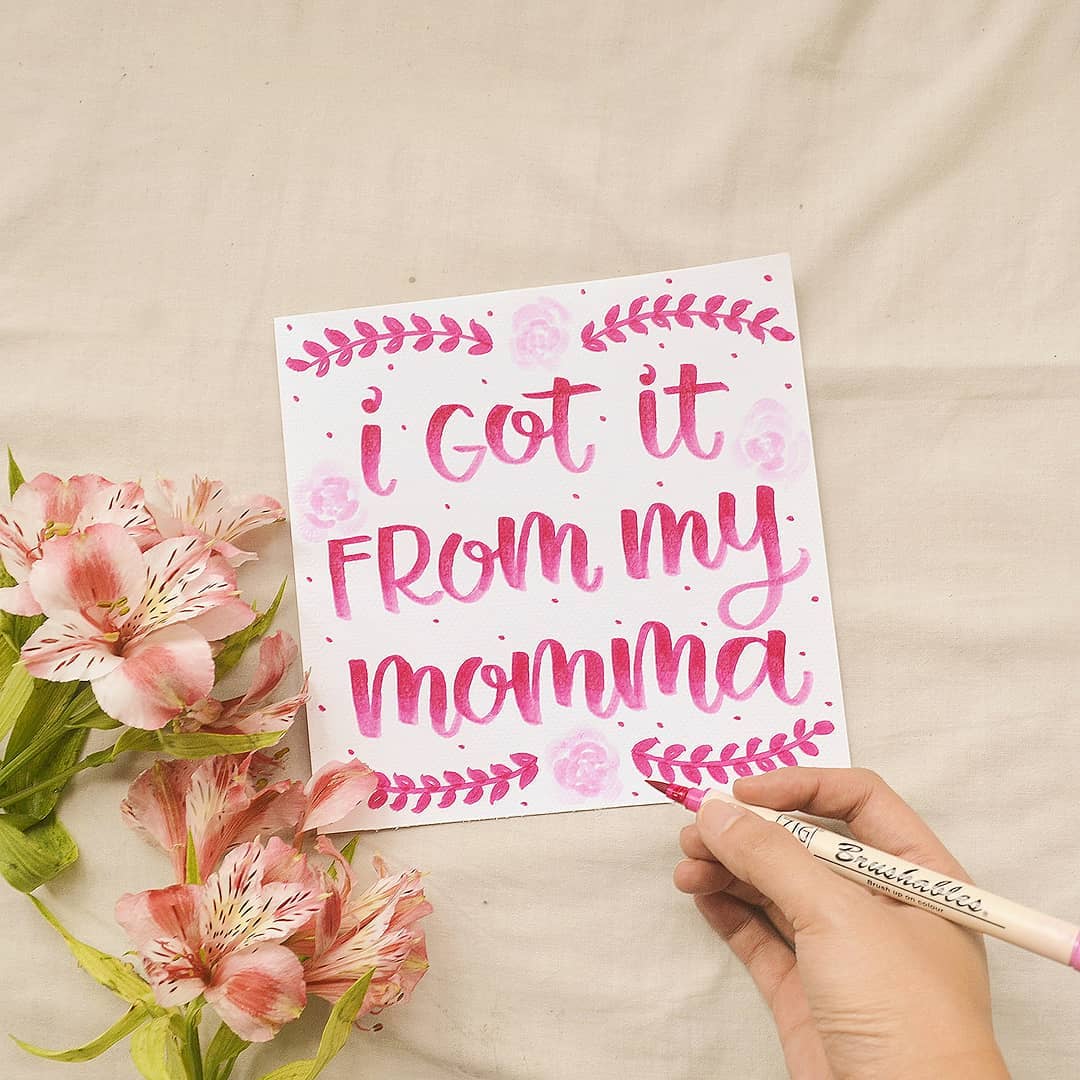 i Got it
FROm my
momma
ZIG
Brushables®
Brush up on colour